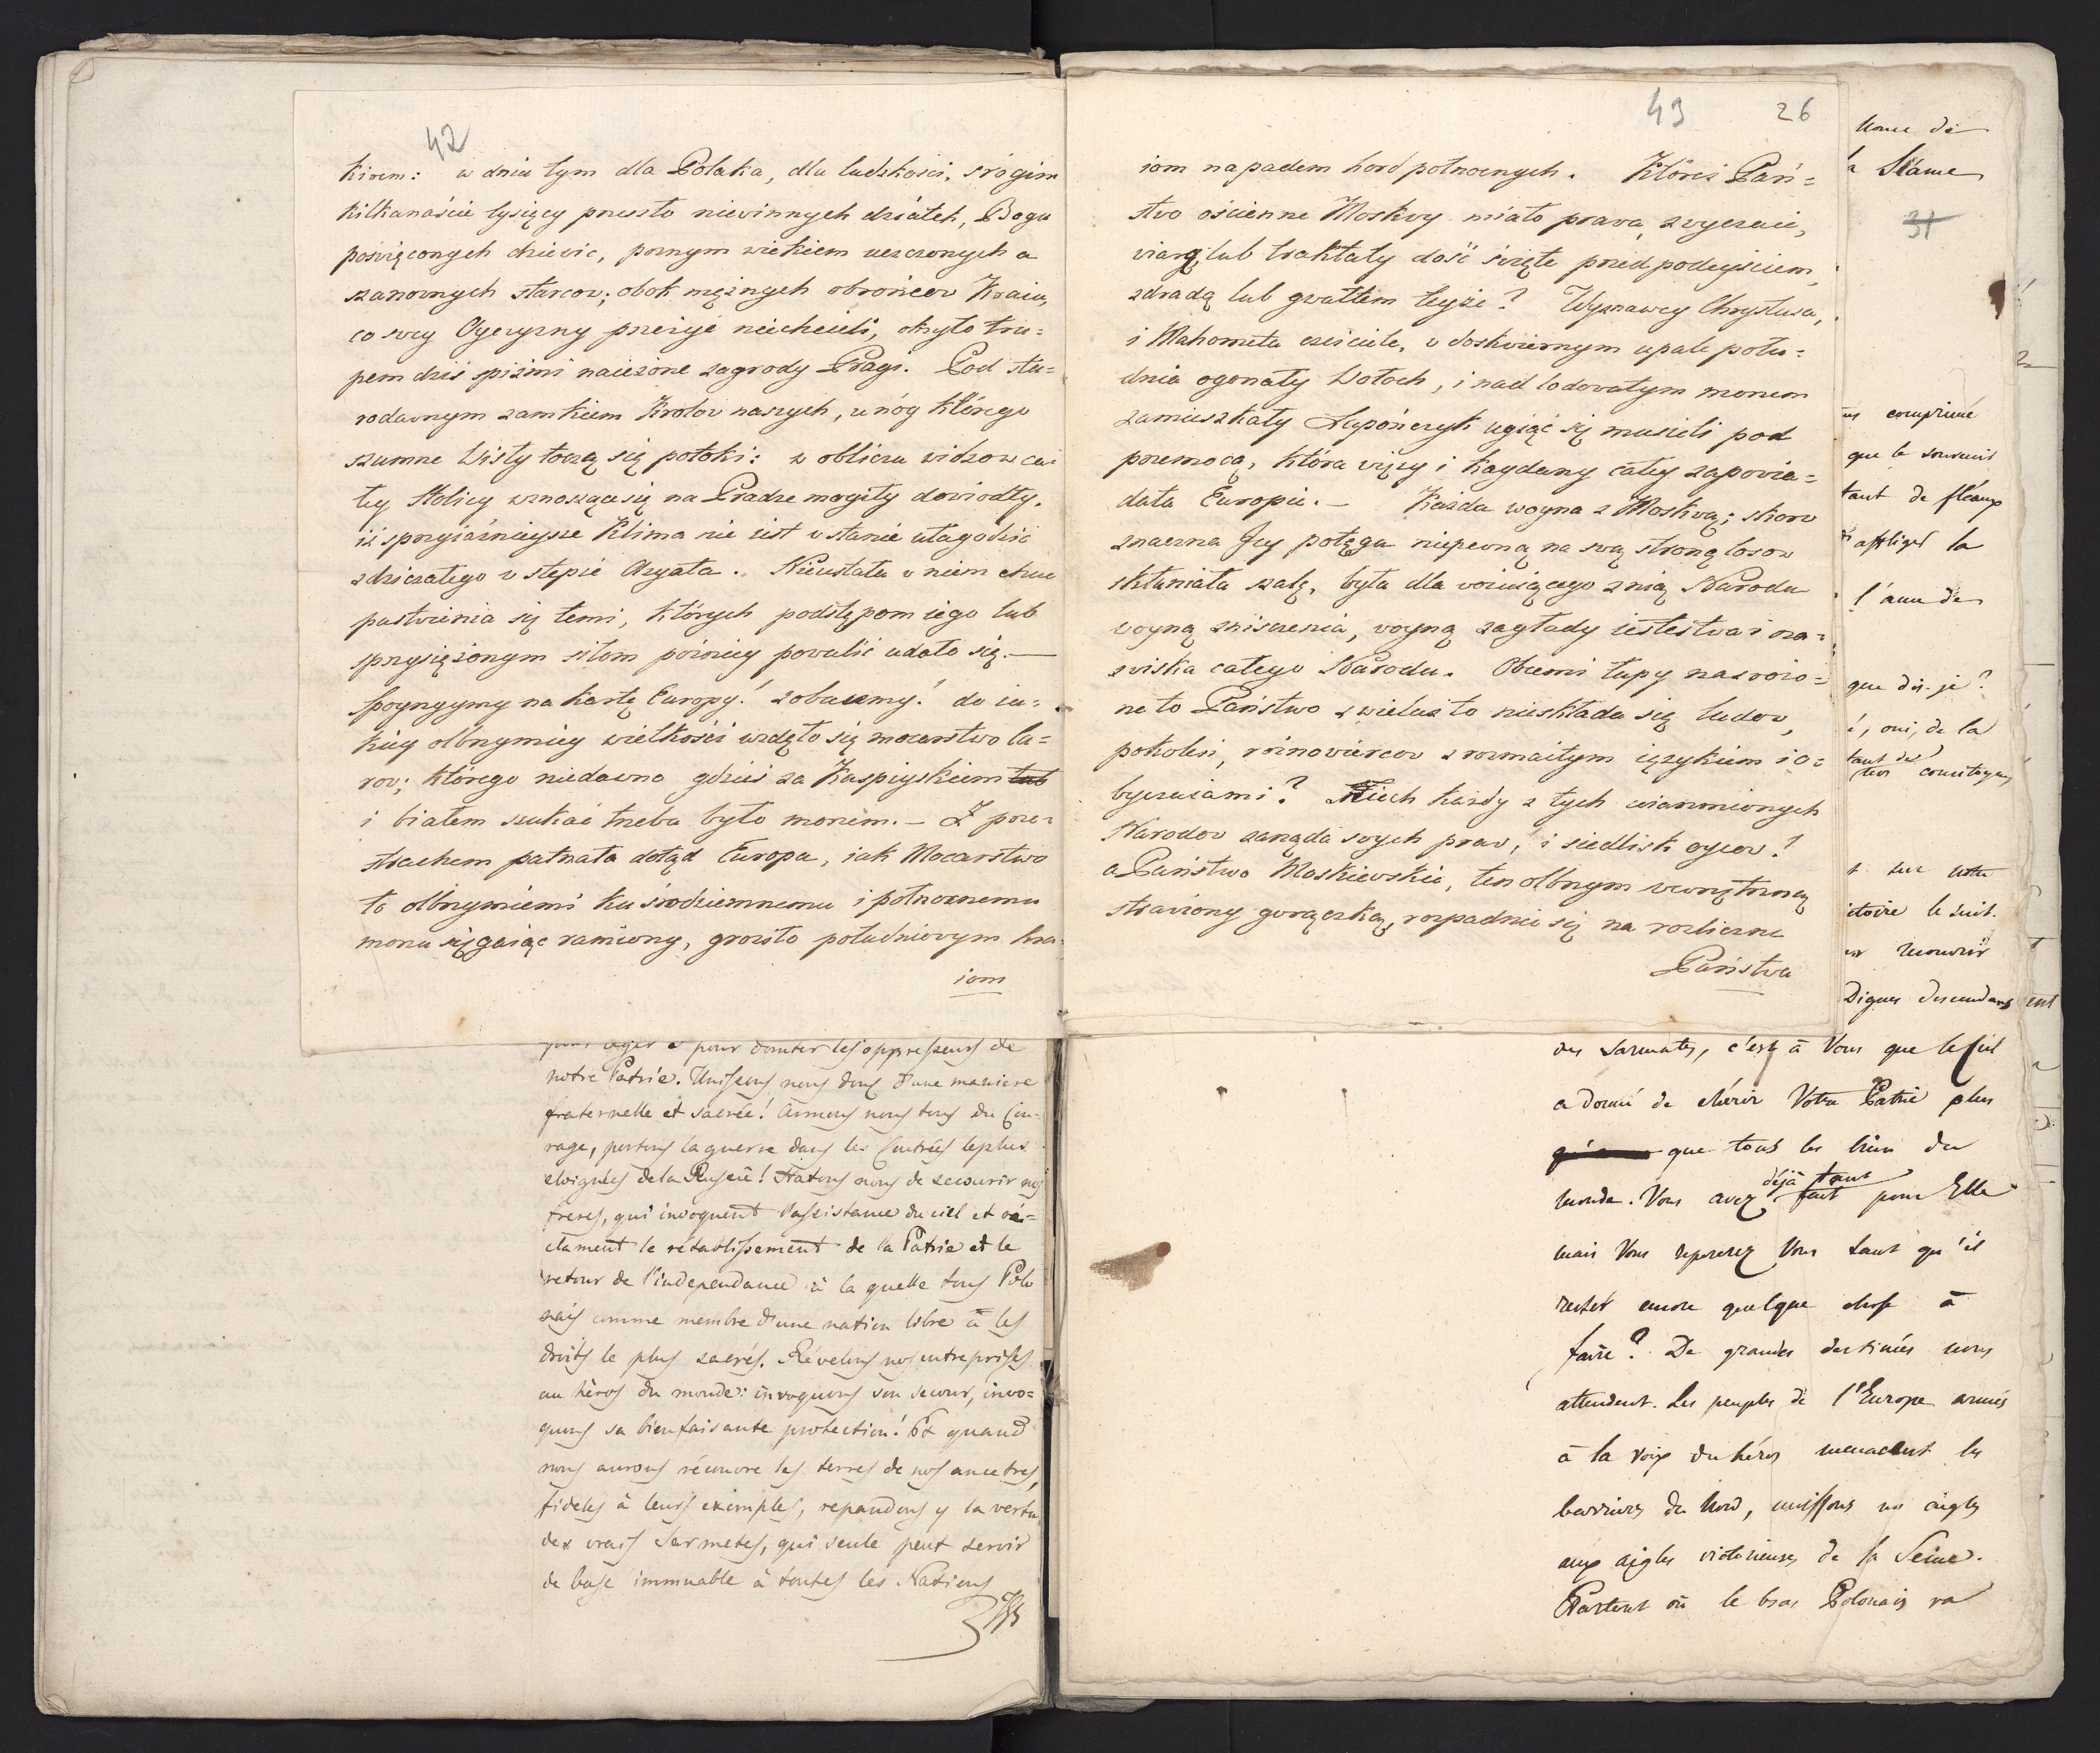 42
kiem: w dniu tym dla Polaka, dla ludzkości, srogim
kilkanaście tysięcy przeszło niewinnych dziatek, Bogu
poświęconych dziewic, poznym wiekiem uczczonych a
szanownych starcow; obok mężnych obrońcow Kraiu,
co swey Oyczyzny przeżyć niechcieli, okryło tru=
pem dziś spiżmi naieżone zagrody Pragi. Pod sta=
rodawnym zamkiem Krolow naszych, u nóg którego
szumne Wisły toczą się potoki: w obliczu widzow ca=
łey Stolicy wznoszące się na Pradze mogiły dowiodły,
iż sprzyiaźnieysze Klima nie iest w stanie ułagodzić
zdziczałego w stepie Azyata. Nieustała w niem chuć
pastwienia się temi, których podstępom iego lub
sprzysiężonym siłom pozniey powalić udało się. —
Spoyrzyimy na kartę Europy! zobaczmy! do ia=
kiey olbrzymiey wielkości wzdęło się mocarstwo Ca=
row; którego niedawno gdzieś za Kaspiyskiem lub
i białem szukać trzeba było morzem. — Z prze=
strachem patrzała dotąd Europa, iak Mocarstwo
to olbrzymiemi ku środziemnemu i połnocnemu
morzu sięgaiąc ramiony, groziło południowym kra=
iom
43 26
iom napadem hord połnocnych. Któreż Pań=
stwo ościenne Moskwy miało prawa, zwyczaie,
wiarę, lub traktaty dość święte przed podeyściem,
zdradą lub gwałtem teyże? Wyznawcy Chrystusa,
i Mahometa czciciele, w doskwiernym upale połu=
dnia ogorzały Wołoch, i nad lodowatym morzem
zamieszkały Lapończyk ugiąć się musieli pod
przemocą, która więzy i kaydany całey zapowia=
dała Europie. — Każda woyna z Moskwą; skoro
znaczna Jey potęga niepewną na swą stronę losow
skłaniała szalę, była dla woiuiącego z nią Narodu
woyną zniszczenia, woyną zagłady iestestwa i na=
zwiska całego Narodu. Obcemi łupy nazwoio=
ne to Państwo z wieluż to nieskłada się ludow,
pokoleń, różnowiercow z rozmaitym ięzykiem i o=
byczaiami? Niech każdy z tych uiarzmionych
Narodow zarząda swych praw, i siedlisk oycow!
a Państwo Moskiewskie, ten olbrzym wewnętrzną
strawiony gorączką, rozpadnie się na rozliczne
Państwa
pour domter les oppresseurs de
notre Patrie. Unissons nous donc d'une maniere
fraternelle et sacrée! Armons nous tous du Cou-
rage, portons la guerre dans les Contrées les plus
eloignées de la Russie! Hatons nous de secourir nos
freres, qui invoquent l'assistance du ciel et ré=
clament le rétablissement de la Patrie et le
retour de l'independance à la quelle tous Polo
nais comme membre d'une nation libre a les
droits le plus sacrés. Révelons nos entreprises
au héros du monde: invoquons son secour, invo=
quons sa bienfaisante protection! Et quand
nous aurons récouvré les terres de nos ancetres,
fideles à leurs exemples, repandons y la vertu
des vrais Sarmates, qui seule peut servir
de base immuable à toutes les Nations
31
comprimé
que le souvenir
tant de fléaux
affliger la
l'âme de
que dis-je?
é, oui, de la
tant des
concitoyens
sur votre
ictoire le suit.
mourir
Dignes descendans
des Sarmates, c'est à Vous que le Ciel
a donné de chérir Votre Patrie plus
que tous les biens du
déjà tant
monde. Vous avez fait pour Elle
mais Vous reposerez Vous tant qu'il
rester encore quelque chose à
faire? De grandes destinées nous
attendent. Les peuples de l'Europe armés
à la voix du héros menacent les
barrieres du Nord, unissons nos aigles
aux aigles victorieuses de la Seine.
Partout où le bras Polonais va